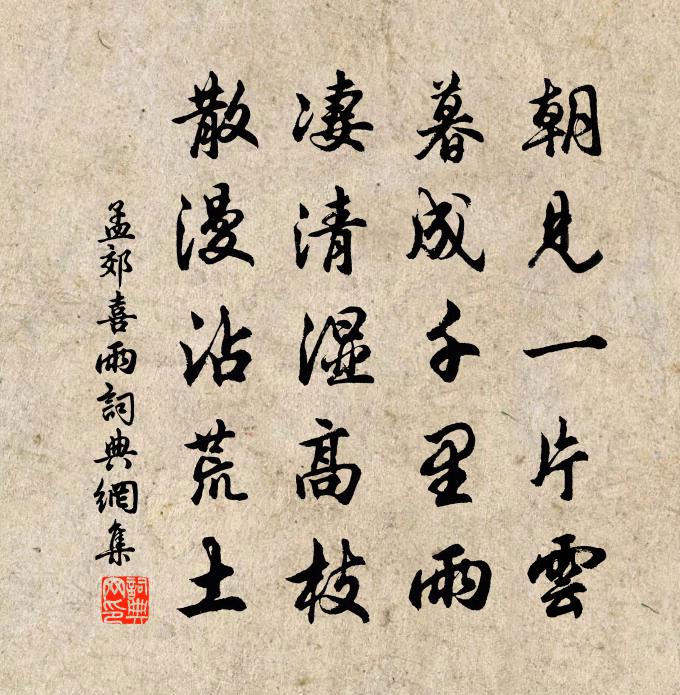 朝見一片雲
暮成千里雨
凄清湿高枝
散漫沾荒土
孟郊喜雨詞典網集
詞典
网印